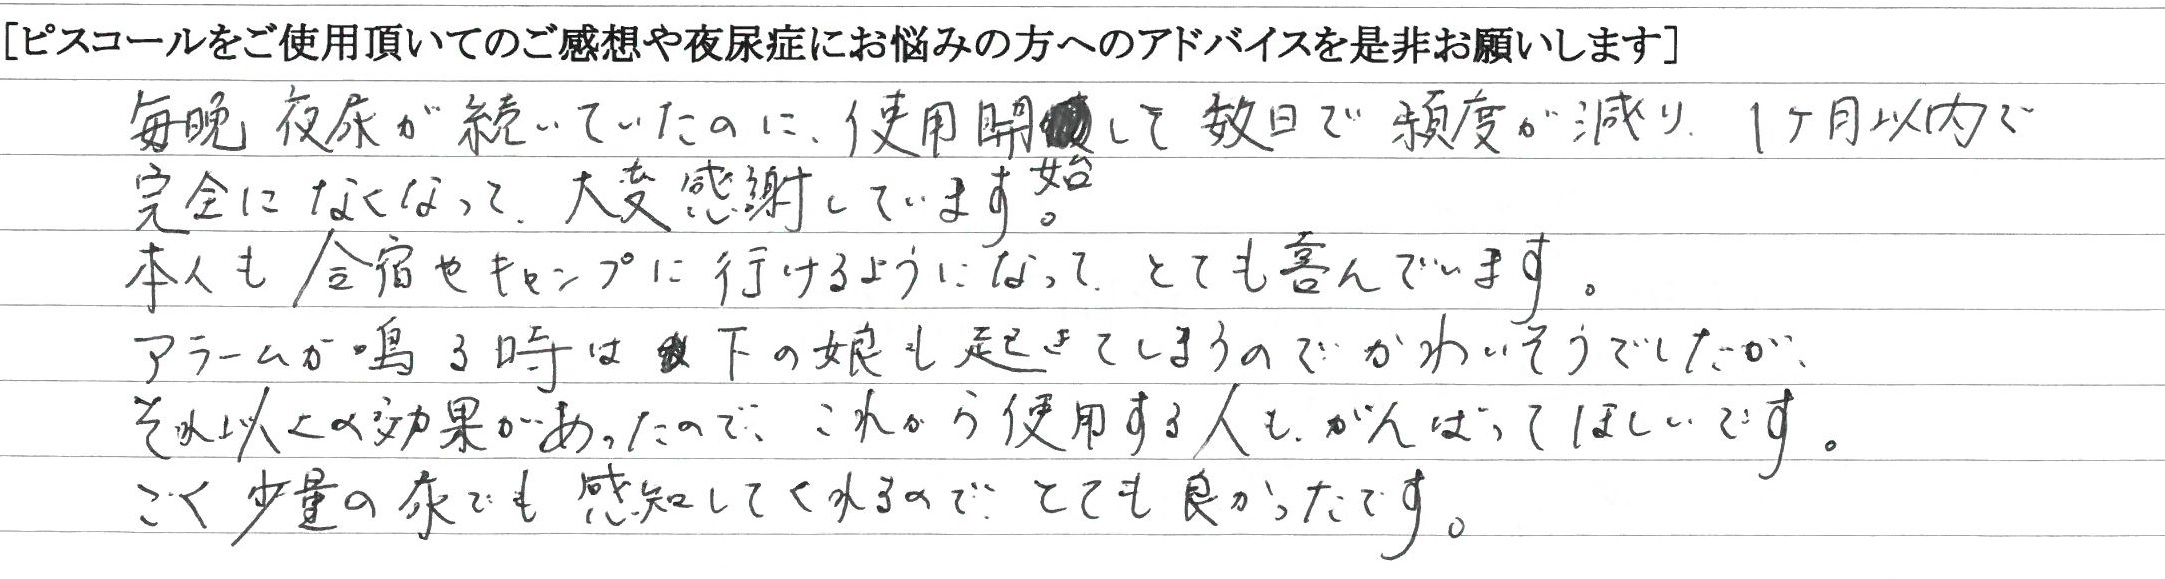 [ピスコールをご使用頂いてのご感想や夜尿症にお悩みの方へのアドバイスを是非お願いします]
毎晩夜尿が続いていたのに、使用開始して数日で頻度が減り、1ヶ月以内で
完全になくなって、大変感謝しています。
本人も合宿やキャンプに行けるようになって、とても喜んでいます。
アラームが鳴る時は下の娘も起きてしまうのでかわいそうでしたが、
それ以上の効果があったので、これから使用する人も、がんばってほしいです。
ごく少量の尿でも感知してくれるので、とても良かったです。